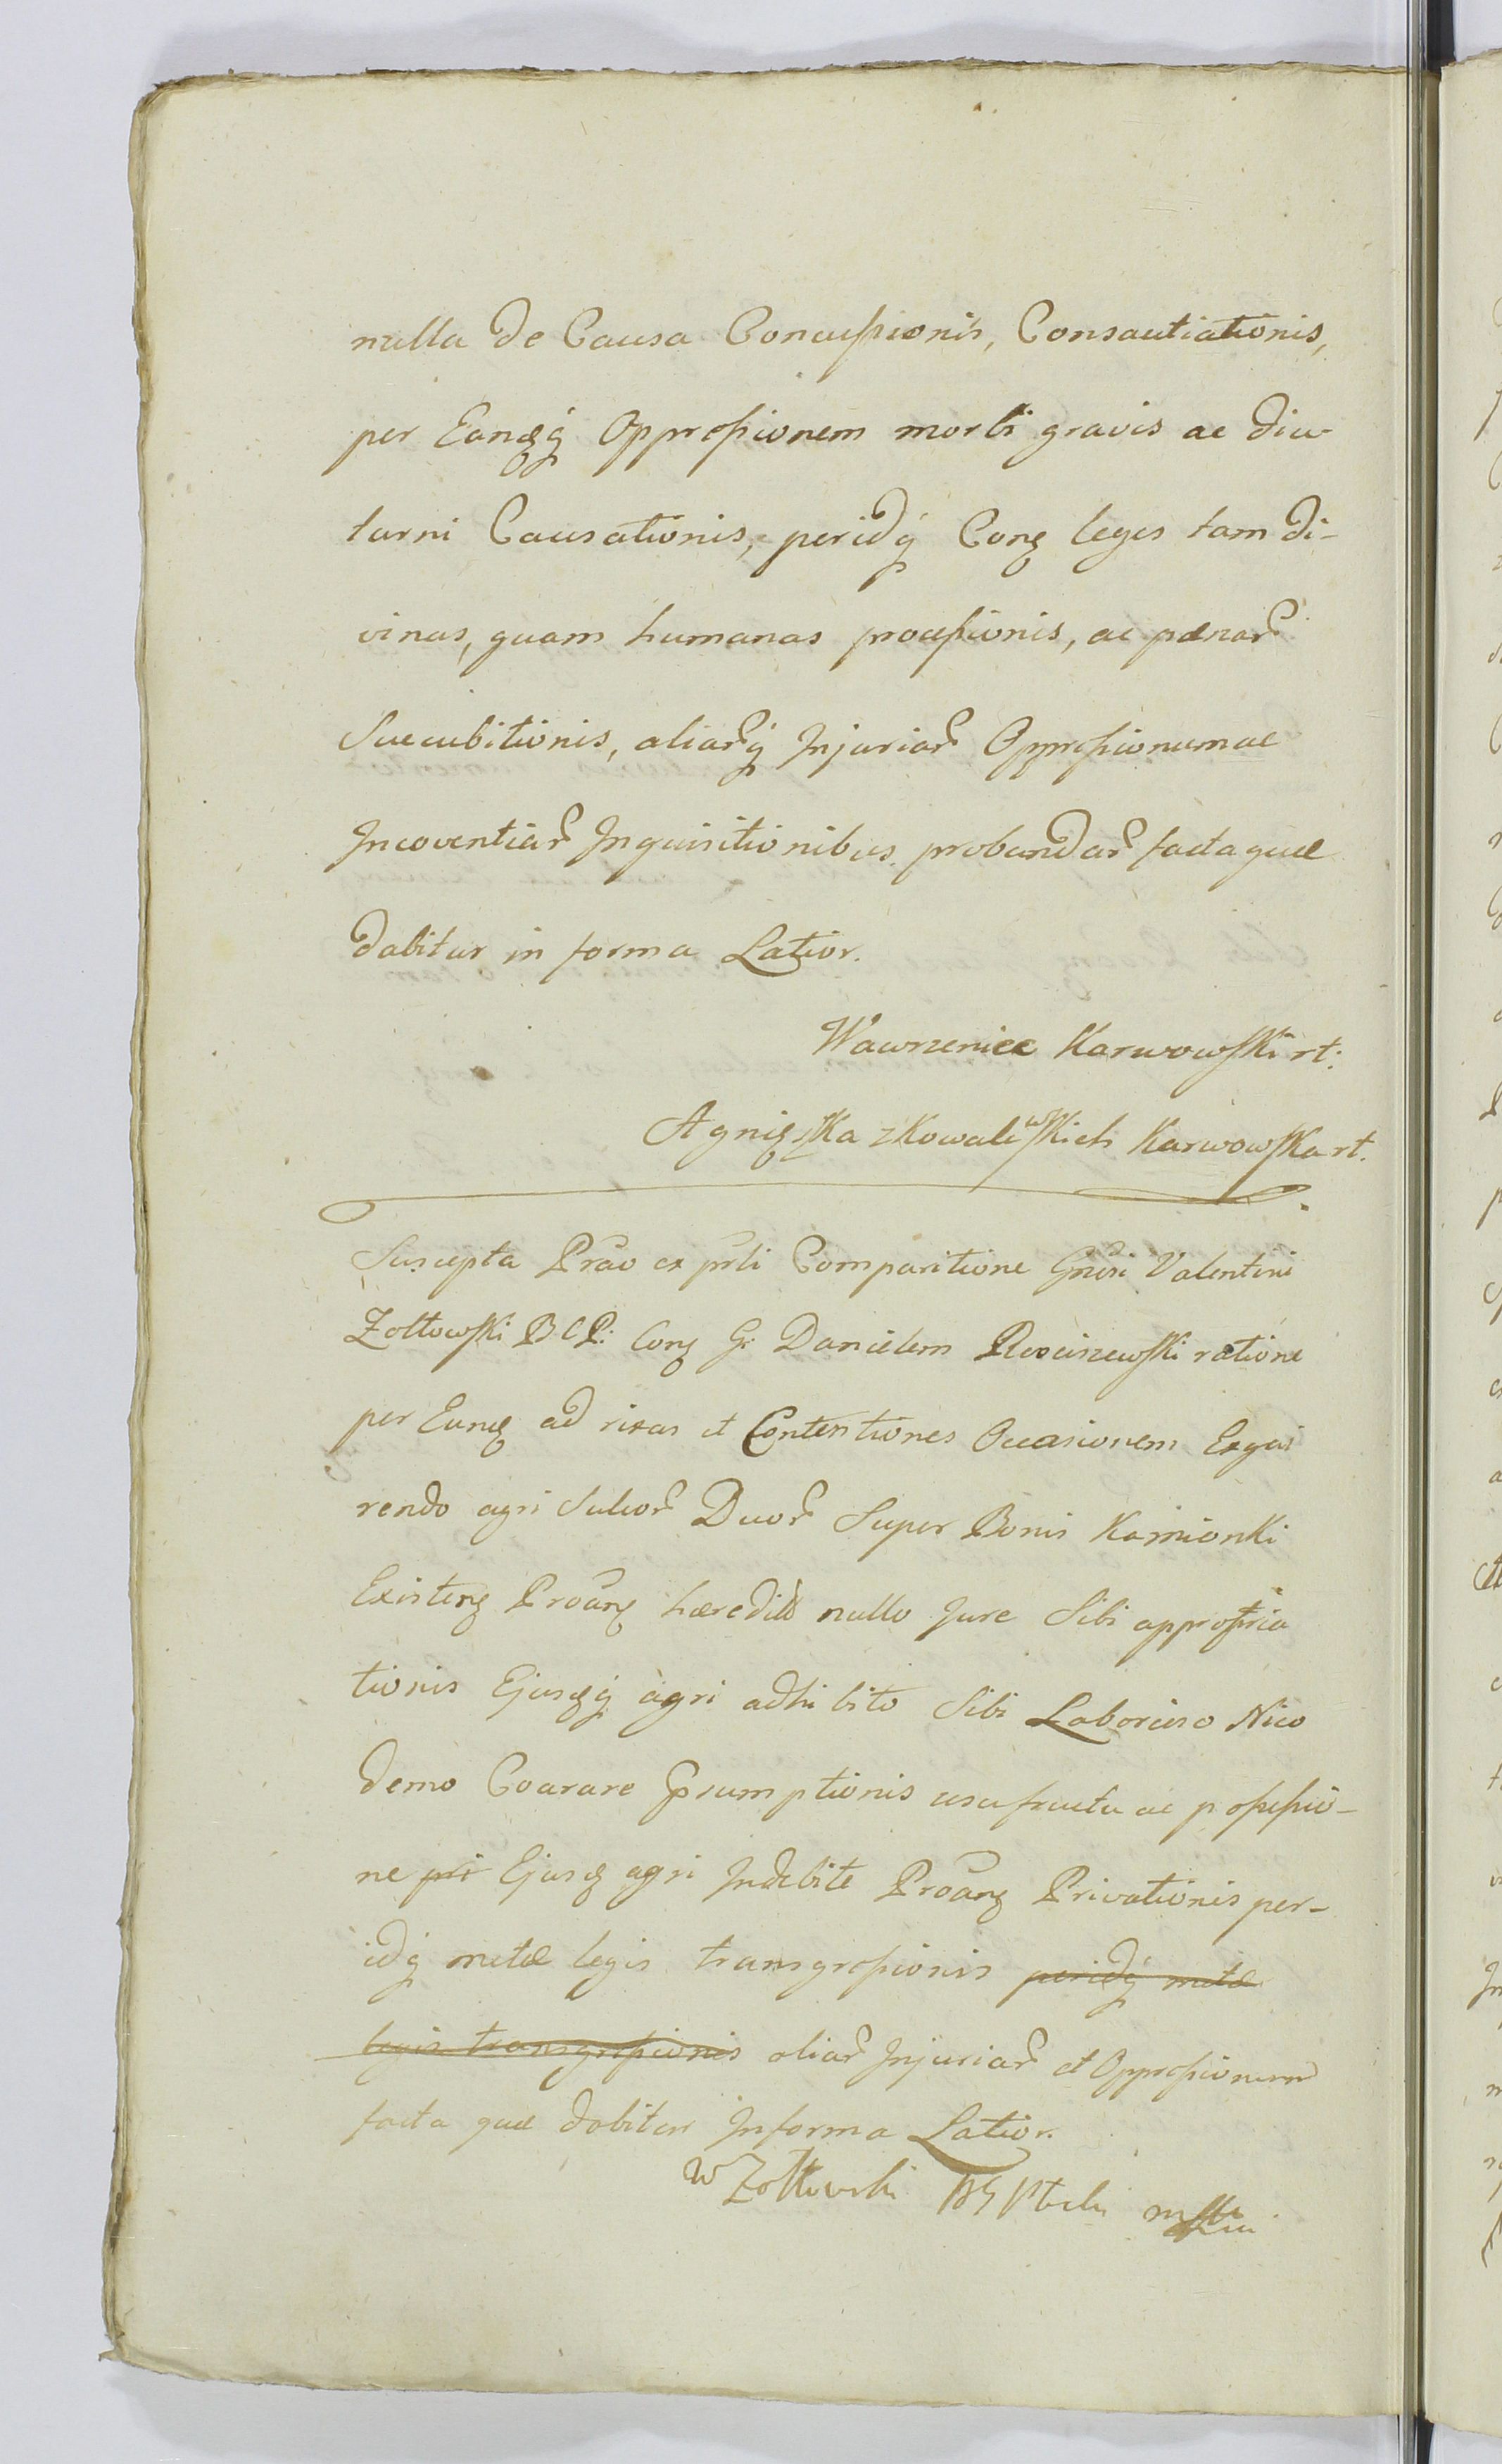 nulla de Causa Concussionis, Consautiationis,
per Eandq́ Oppressionem morbi gravis ac diu-
turni Causationis, peridq́ Conz leges tam di-
vinas, quam humanas processionis, ac pœnar̃
Succubitionis, aliar̃q́ Injuriar̃ Oppressionumae
Incoventiar̃ Inquisitionibus probandar̃ facta quæ
dabitur in forma Latior.
Wawrzeniec Karwowski rt:
Agnięszka z Kowalewskich Karwowska rt.
Suscepta Prao ex prli Comparitione Gnẽsi Valentini
Zołtowski B C P: Conz G: Danielem Rosciszewski ratione
per Eunq ad rixas et Contentiones Occasionem Exqui
rendo agri Sulcor̃ Duor̃ Super Bonis Kamionki
Existenz Proanz hæredit nullo Jure Sibi appropria
tionis Ejusdq́ agri adhibito Sibi Laborioso Nico
demo Coarare Præsumptionis usufructu ac possessio-
ne pri Ejusd agri Indebite Proanz Privationis per-
idq́ metæ legis transgressionis peridq́ metæ
legis transgressionis aliar̃ Injuriar̃ et Oppressionum
facta quæ dabitur Informa Latior.
W Zołtowski